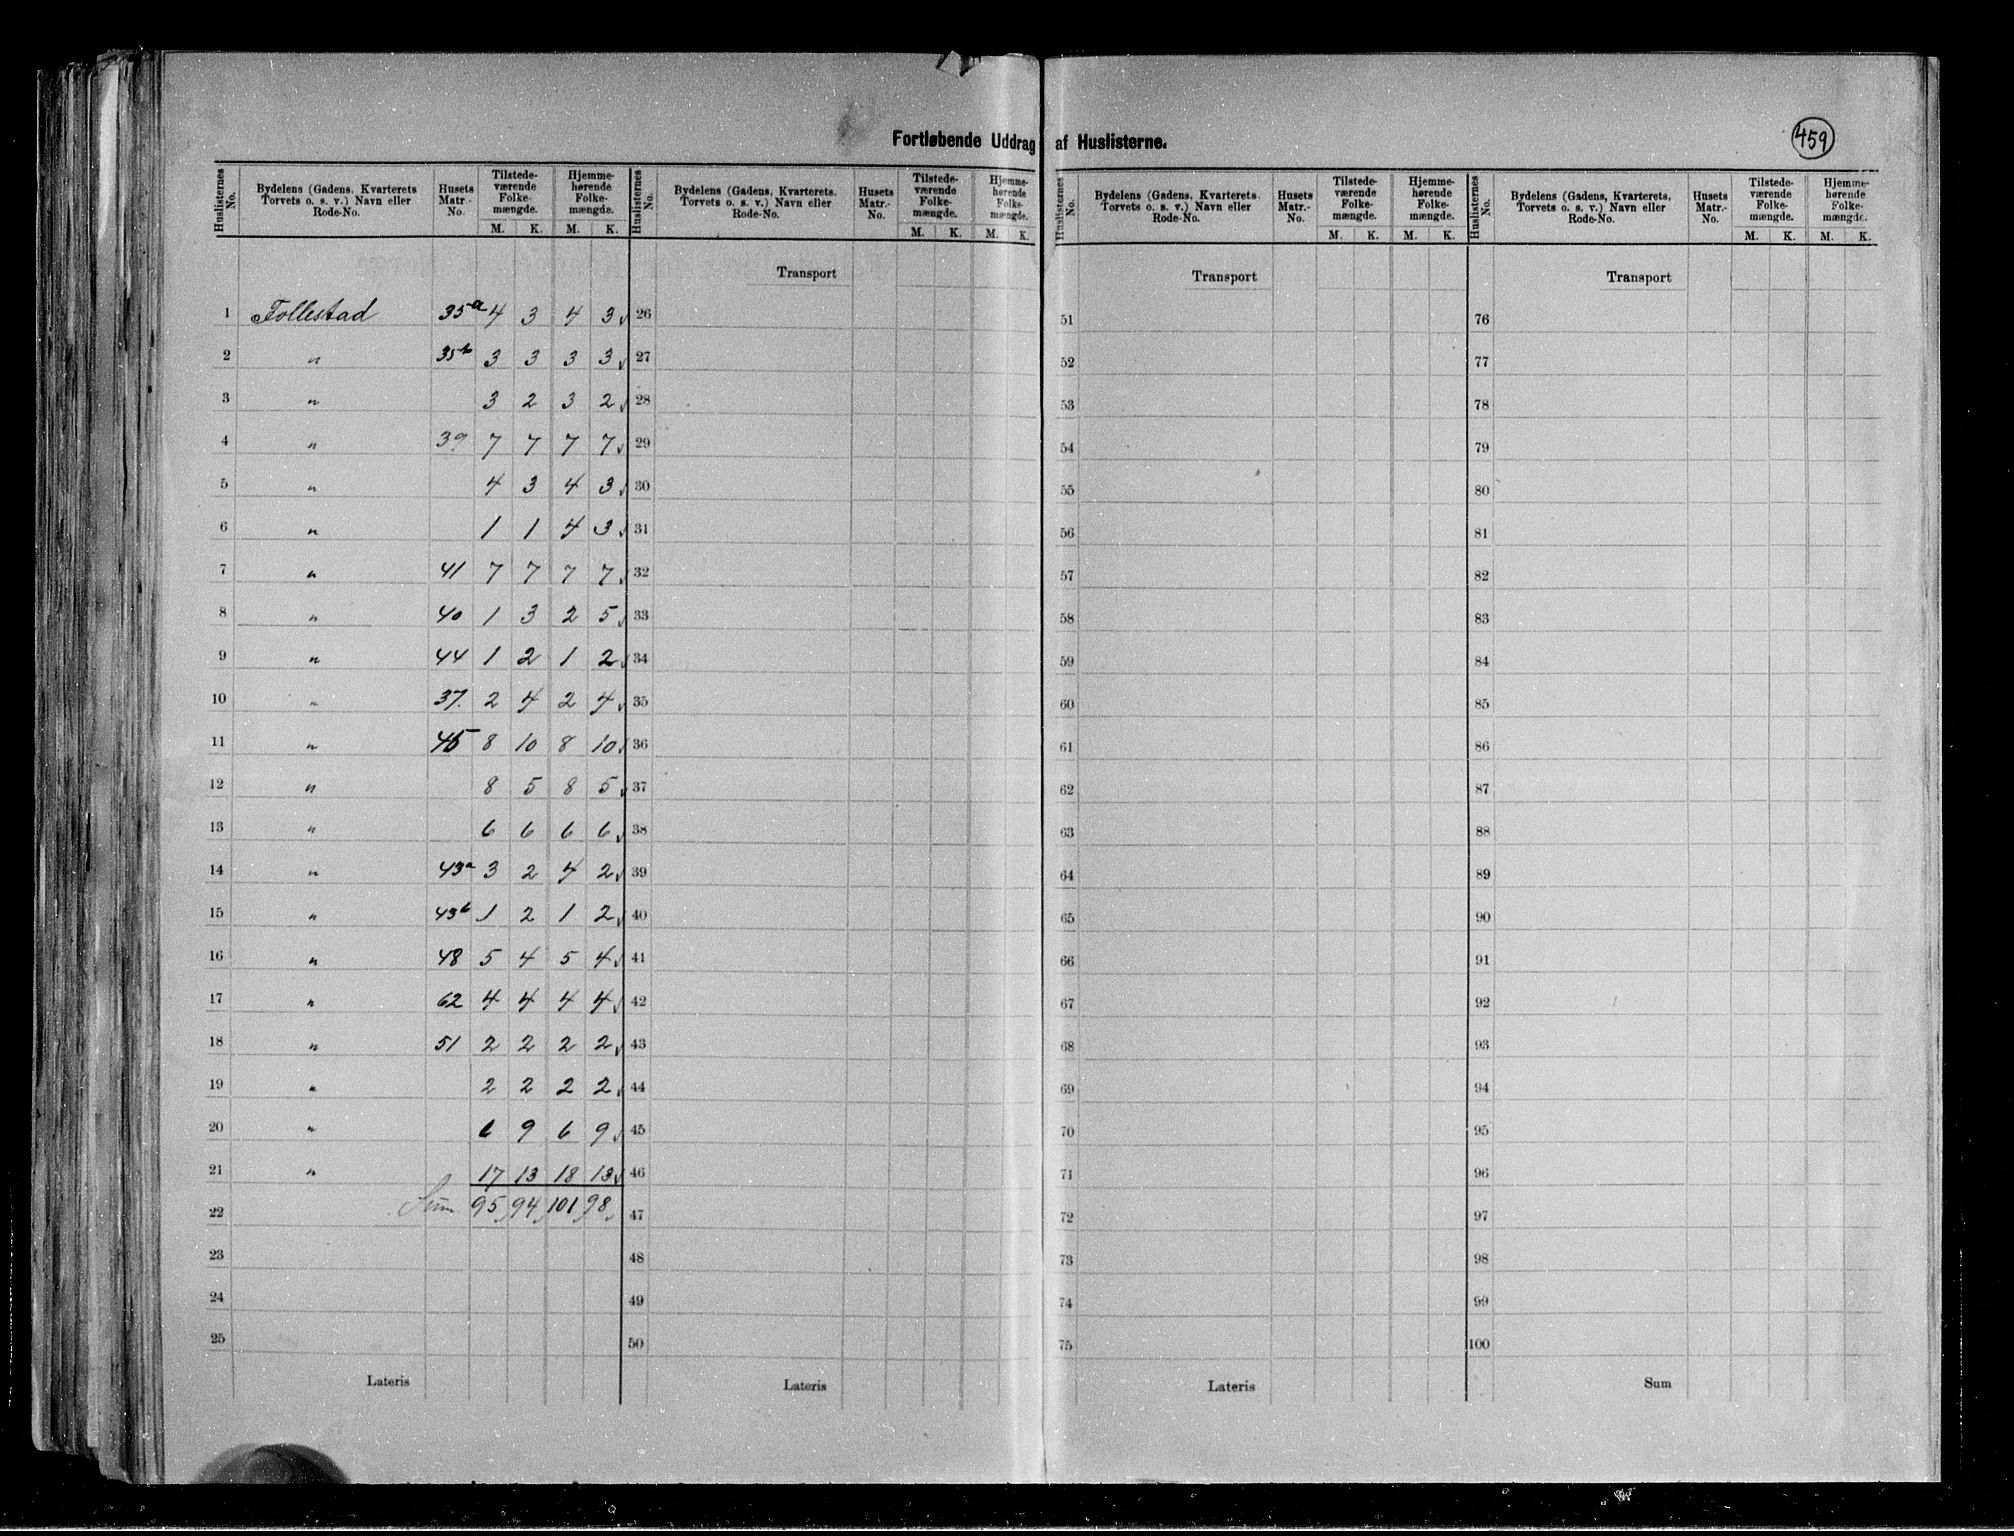 459
Fortløbende Uddrag af Huslisterne.
Huslisternes No. | Bydelens (Gadens, Kvarterets Torvets o. s. v.) Navn eller Rode-No. | Husets Matr.-No. | Tilstede-værende Folke-mængde. M. K. | Hjemme-hørende Folke-mængde. M. K.
Huslisternes No. | Bydelens (Gadens, Kvarterets, Torvets o. s. v.) Navn eller Rode-No. | Husets Matr.-No. | Tilstede-værende Folke-mængde. M. K. | Hjemme-hørende Folke-mængde. M. K.
Huslisternes No. | Bydelens (Gadens, Kvarterets, Torvets o. s. v.) Navn eller Rode-No. | Husets Matr.-No. | Tilstede-værende Folke-mængde. M. K. | Hjemme-hørende Folke-mængde. M. K.
Huslisternes No. | Bydelens (Gadens, Kvarterets, Torvets o. s. v.) Navn eller Rode-No. | Husets Matr.-No. | Tilstede-værende Folke-mængde. M. K. | Hjemme-hørende Folke-mængde. M. K.
Transport Transport Transport
1 Follestad 35a 4 3 4 3 26 51 76
2 " 35b 3 3 3 3 27 52 77
3 " 3 2 3 2 28 53 78
4 " 39 7 7 7 7 29 54 79
5 " 4 3 4 3 30 55 80
6 " 1 1 4 3 31 56 81
7 " 41 7 7 7 7 32 57 82
8 " 40 1 3 2 5 33 58 83
9 " 44 1 2 1 2 34 59 84
10 " 37. 2 4 2 4 35 60 85
11 " 45 8 10 8 10 36 61 86
12 " 8 5 8 5 37 62 87
13 " 6 6 6 6 38 63 88
14 " 43a 3 2 4 2 39 64 89
15 " 43b 1 2 1 2 40 65 90
16 " 48 5 4 5 4 41 66 91
17 " 62 4 4 4 4 42 67 92
18 " 51 2 2 2 2 43 68 93
19 " 2 2 2 2 44 69 94
20 " 6 9 6 9 45 70 95
21 " 17 13 18 13 46 71 96
22 Sum 95 94 101 98 47 72 97
23 48 73 98
24 49 74 99
25 50 75 100
Lateris Lateris Lateris Sum